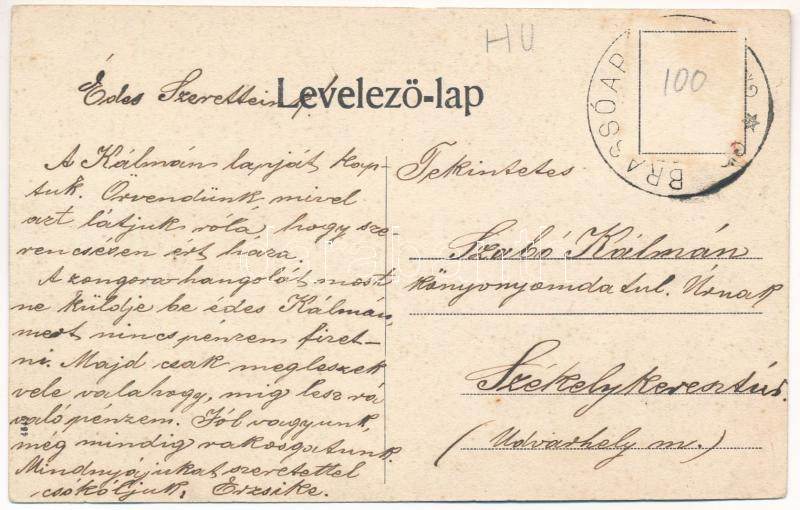 HU
100
BRASSÓ AP
Levelező-lap
Édes Szeretteim!
A Kálmán lapját kap-
tuk. Örvendünk mivel
azt látjuk róla, hogy sze
rencsésen ért haza.
A zongora hangolót most
ne küldje be édes Kálmán,
mert nincs pénzem fizet-
ni. Majd csak megleszek
vele valahogy, mig lesz rá
való pénzem. Jól vagyunk,
még mindig rakosgatunk.
Mindnyájukat szeretettel
csókóljuk, Erzsike.
Tekintetes
Szabó Kálmán
könyvnyomdatul. Úrnak
Székelykeresztúr.
(Udvarhely m.)
darabanth